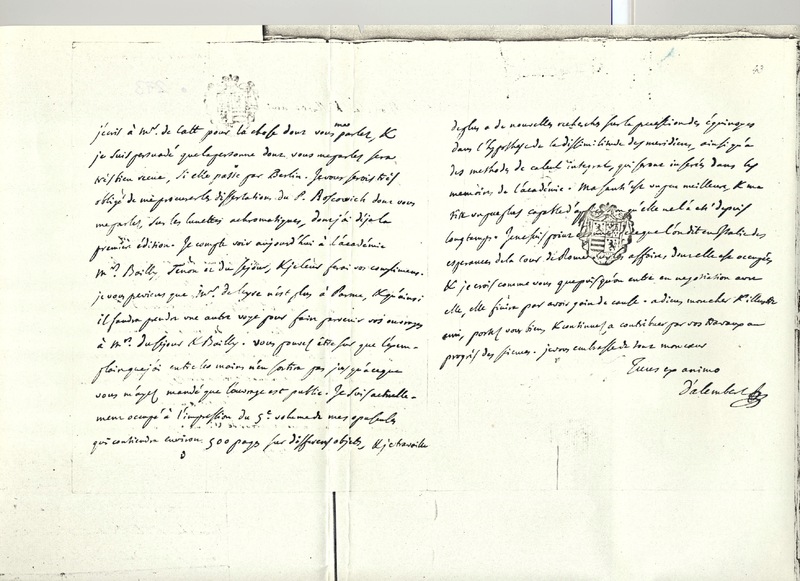 j'ecris à Mr. de Catt pour la chose dont vous me parlez, &
je suis persuadé que la personne dont vous me parlez sera
très bien recue, si elle passe par Berlin. Je vous serois très
obligé de me procurer la dissertation du P. Boscowich dont vous
me parlez, sur les lunettes achromatiques, dont j'ai deja la
premiere édition. Je compte voir aujourd'hui à l'académie
Mrs. Bailly, Tenon et du Séjour, & je leur ferai vos complimens.
je vous previens que Mr. de Leyre n'est plus à Parme, & qu'ainsi
il faudra prendre une autre voye pour faire parvenir vos ouvrages
à Mrs. du Séjour & Bailly. Vous pouvez être sur que l'exem-
plaire que j'ai entre les mains n'en sortira pas jusqu'à ce que
vous m'ayez mandé que l'ouvrage est public. Je suis actuelle-
ment occupé à l'impression du 5e. volume de mes opuscules
qui contiendra environ 500 pages sur differens objets, & je travaille
de plus a de nouvelles recherches sur la precession des équinoxes
dans l'hypothese de la dissimilitude des meridiens, ainsi qu'à
des methodes de calcul integral, qui seront inserées dans les
memoires de l'académie. Ma santé est un peu meilleure, & ma
tête un peu plus capable d'ap qu'elle ne l'a été depuis
longtemps. Je ne sais point ce que l'on dit en Italie des
esperances de la cour de Rome affaires dont elle est occupée,
& je crois comme vous que puisqu'on entre en negotiation avec
elle, elle finira par avoir gain de cause. adieu, mon cher & illustre
ami, portez vous bien, & continuez à contribuer par vos travaux au
progrès des sciences. je vous embrasse de tout mon cœur
Tuus ex animo
D'alembert